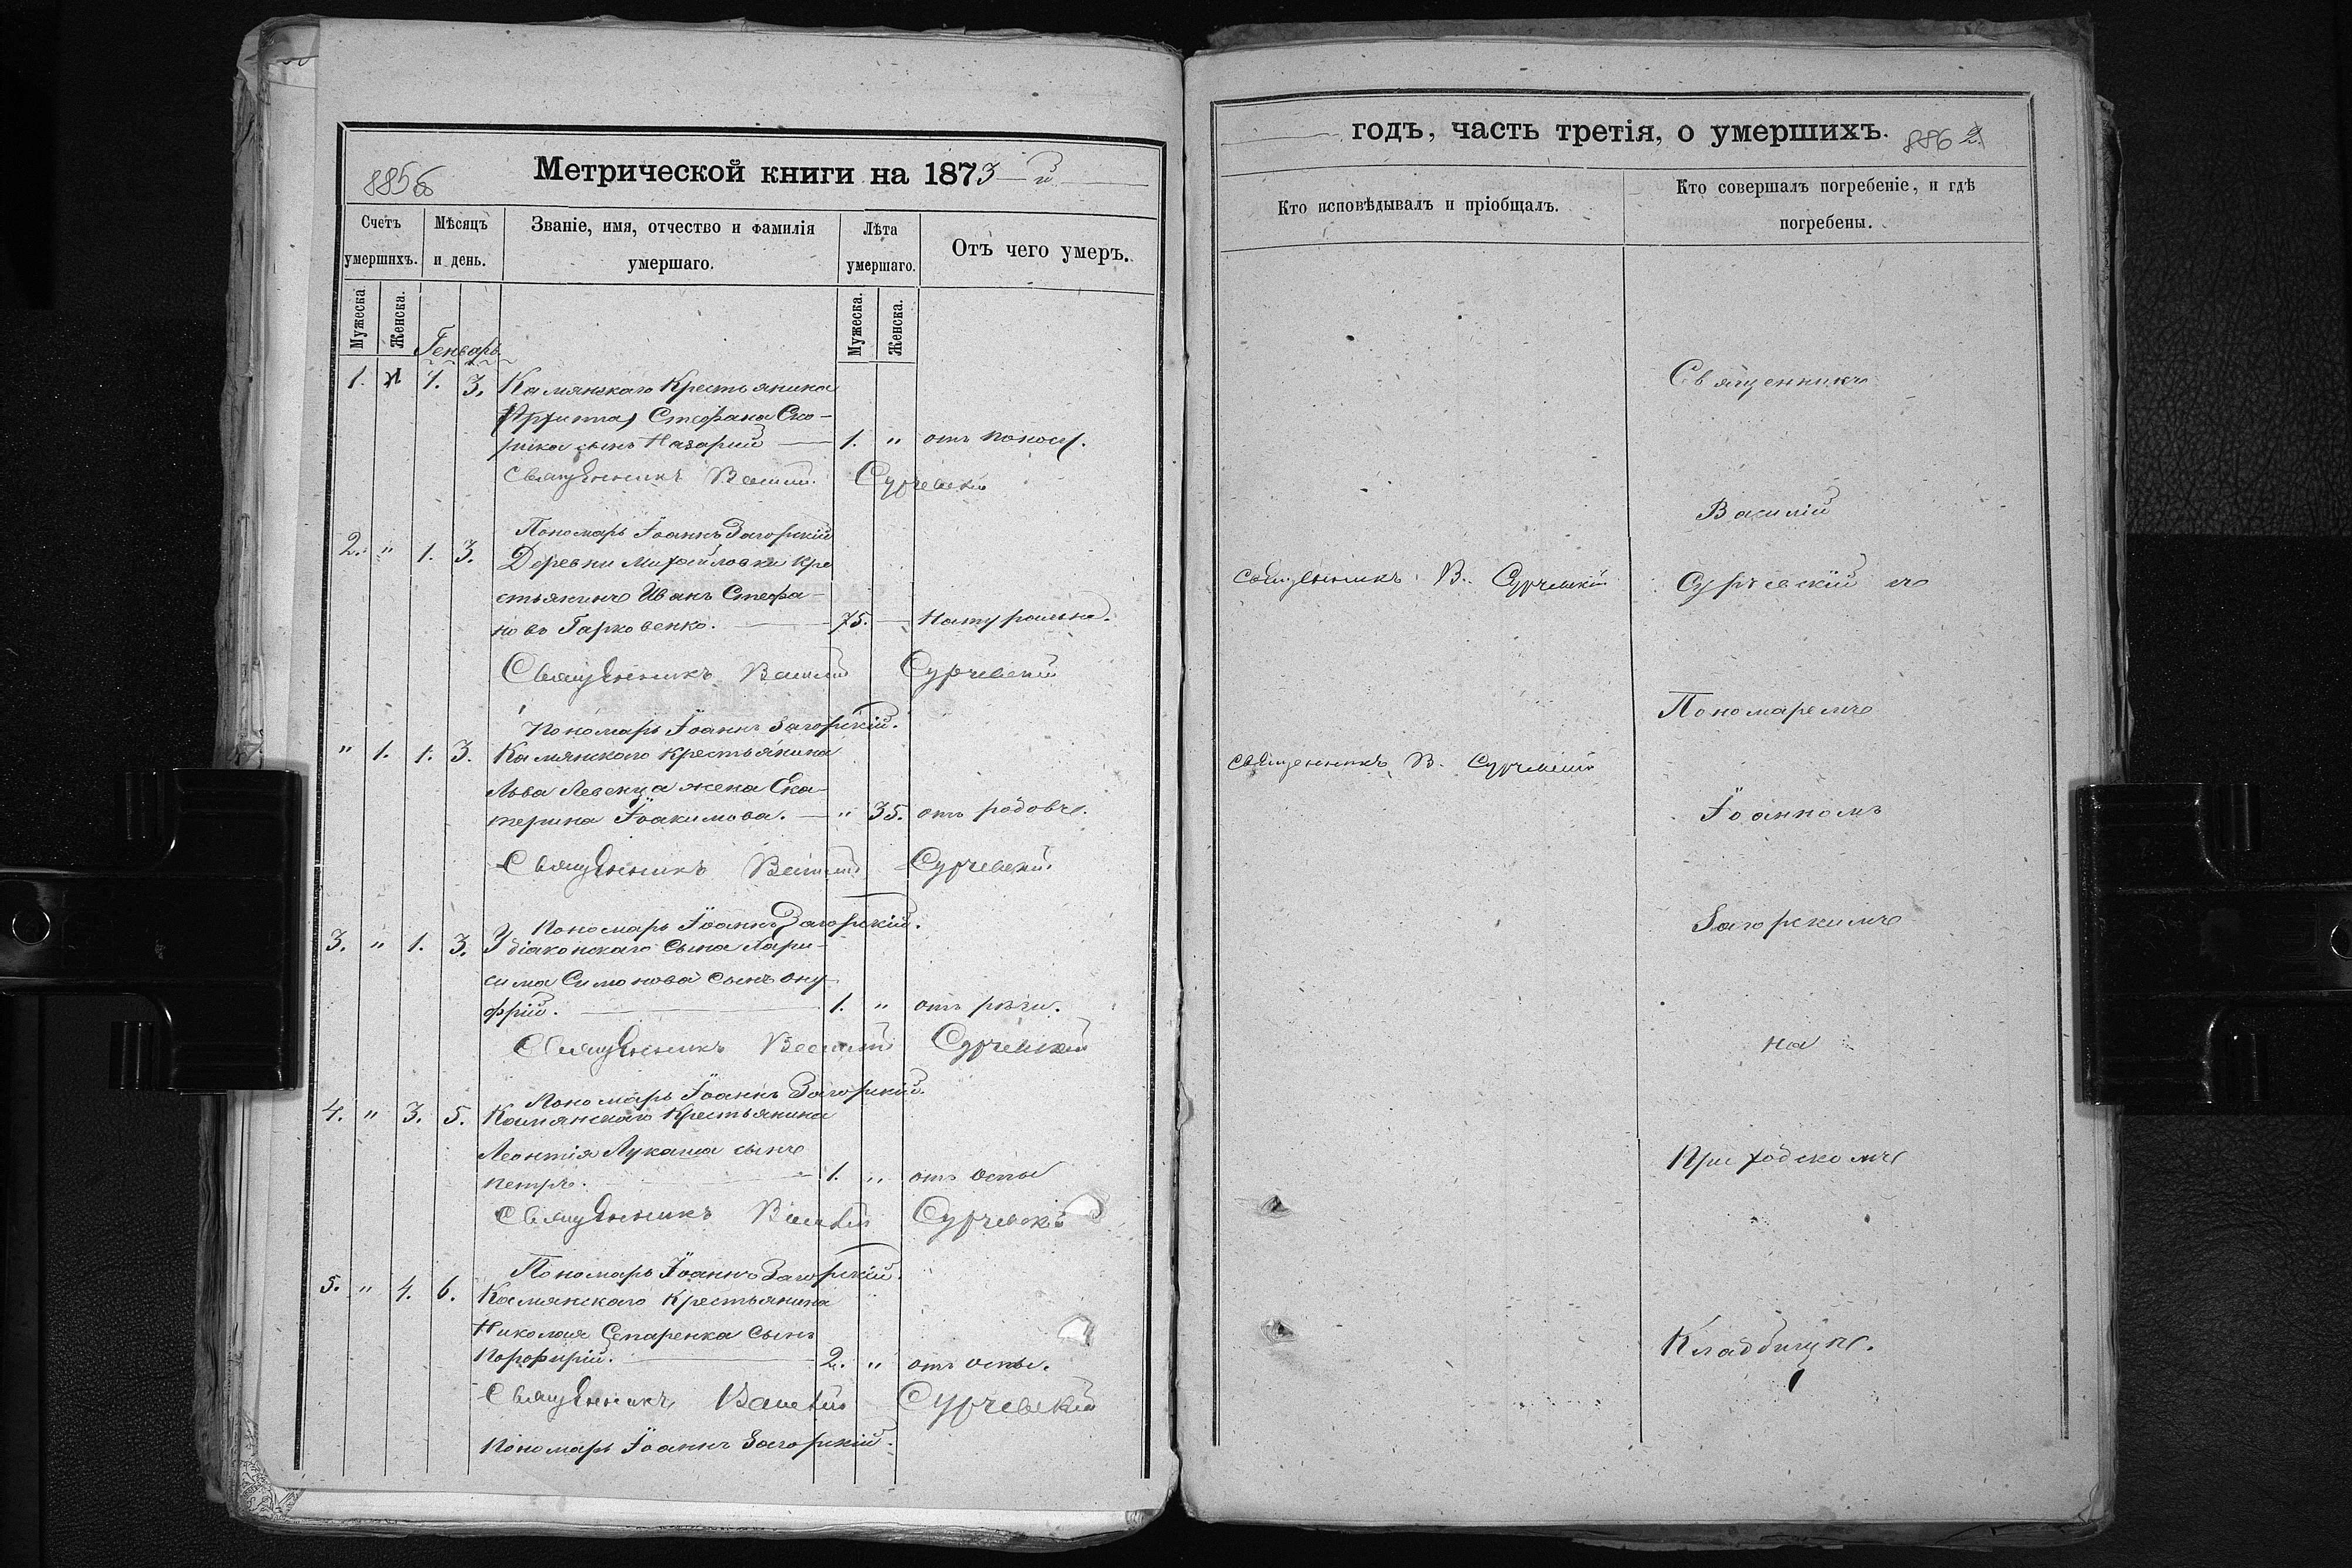 Метрической книги на 1873 й
Счетъ умершихъ.
Мѣсяцъ и день.
Званіе, имя, отчество и фамилія умершаго.
Лѣта умершаго.
Отъ чего умеръ.
Мужеска
Женска.
Генварь
Мужеска.
Женска.
1. 1. 3. Камянскаго Крестьянина
Стефана Ско-
рика сынъ Назарий 1. " отъ поносу.
Священникъ Василий Сурчевский
Пономарь Іоаннъ Загорскій
2. " 1. 3. Деревни Михайловки Кре
стьянинъ Иванъ Стефа-
новъ Гарковенко. 75. Натурально.
Священникъ Василий Сурчевский
Пономарь Іоаннъ Загорскій.
" 1. 1. 3. Камянскаго Крестьянина
Льва Левенца жена Ека-
терина Іоакимова. " 35. отъ родовъ.
Священникъ Василий Сурчевский
Пономарь Іоаннъ Загорскій.
3. " 1. 3. Удіаконскаго сына
Симонова сынъ Ону
фрій. 1. " отъ
Священникъ Василий Сурчевский
Пономарь Іоаннъ Загорскій.
4. " 3. 5. Камянскаго Крестьянина
Леонтія Лукаша сынъ
Петръ. 1. " отъ оспы
Священникъ Василий Сурчевский
Пономарь Іоаннъ Загорскій.
5. " 4. 6. Камянскаго Крестьянина
Николая сынъ
Порофирій. 2. " отъ оспы.
Священникъ Василий Сурчевский
Пономарь Іоаннъ Загорскій.
годъ, часть третія, о умершихъ.
Кто исповѣдывалъ и пріобщалъ.
Кто совершалъ погребеніе, и гдѣ
погребены.
Священникъ
Василій
священникъ В. Сурчевский
Сурчевскій съ
Пономаремъ
священникъ В. Сурчевский
Іоанномъ
Загорскимъ
на
Приходскомъ
Кладбищѣ.